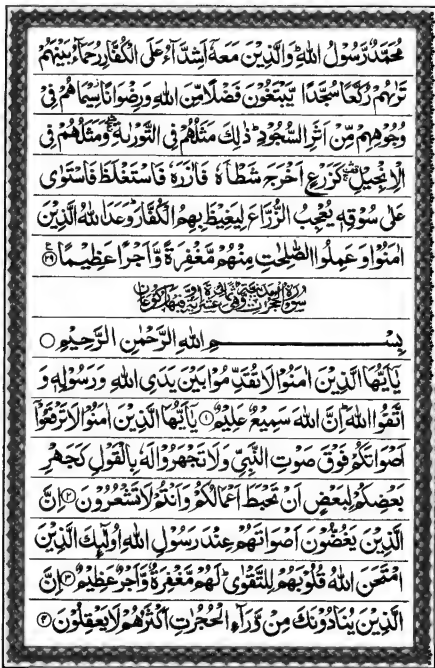 مُحَمَّدٌ رَّسُوْلُ اللّٰهِ ؕ وَالَّذِيْنَ مَعَهٗۤ اَشِدَّآءُ عَلَى الْكُفَّارِ رُحَمَآءُ بَيْنَهُمْ
تَرٰىهُمْ رُكَّعًا سُجَّدًا يَّبْتَغُوْنَ فَضْلًا مِّنَ اللّٰهِ وَرِضْوَانًا ؗ سِيْمَاهُمْ فِيْ
وُجُوْهِهِمْ مِّنْ اَثَرِ السُّجُوْدِ ؕ ذٰلِكَ مَثَلُهُمْ فِي التَّوْرٰىةِ ۛۖۚ وَمَثَلُهُمْ فِي
الْاِنْجِيْلِ ۛ۫ۚ كَزَرْعٍ اَخْرَجَ شَطْـَٔهٗ فَاٰزَرَهٗ فَاسْتَغْلَظَ فَاسْتَوٰى
عَلٰى سُوْقِهٖ يُعْجِبُ الزُّرَّاعَ لِيَغِيْظَ بِهِمُ الْكُفَّارَ ؕ وَعَدَ اللّٰهُ الَّذِيْنَ
اٰمَنُوْا وَعَمِلُوا الصّٰلِحٰتِ مِنْهُمْ مَّغْفِرَةً وَّاَجْرًا عَظِيْمًا ۟ ﴿۲۹﴾
بِسْمِ اللّٰهِ الرَّحْمٰنِ الرَّحِيْمِ ○
يٰۤاَيُّهَا الَّذِيْنَ اٰمَنُوْا لَا تُقَدِّمُوْا بَيْنَ يَدَيِ اللّٰهِ وَرَسُوْلِهٖ وَ
اتَّقُوا اللّٰهَ ؕ اِنَّ اللّٰهَ سَمِيْعٌ عَلِيْمٌ ﴿۱﴾ يٰۤاَيُّهَا الَّذِيْنَ اٰمَنُوْا لَا تَرْفَعُوْۤا
اَصْوَاتَكُمْ فَوْقَ صَوْتِ النَّبِيِّ وَلَا تَجْهَرُوْا لَهٗ بِالْقَوْلِ كَجَهْرِ
بَعْضِكُمْ لِبَعْضٍ اَنْ تَحْبَطَ اَعْمَالُكُمْ وَاَنْتُمْ لَا تَشْعُرُوْنَ ﴿۲﴾ اِنَّ
الَّذِيْنَ يَغُضُّوْنَ اَصْوَاتَهُمْ عِنْدَ رَسُوْلِ اللّٰهِ اُولٰٓئِكَ الَّذِيْنَ
امْتَحَنَ اللّٰهُ قُلُوْبَهُمْ لِلتَّقْوٰى ؕ لَهُمْ مَّغْفِرَةٌ وَّاَجْرٌ عَظِيْمٌ ﴿۳﴾ اِنَّ
الَّذِيْنَ يُنَادُوْنَكَ مِنْ وَّرَآءِ الْحُجُرٰتِ اَكْثَرُهُمْ لَا يَعْقِلُوْنَ ﴿۴﴾